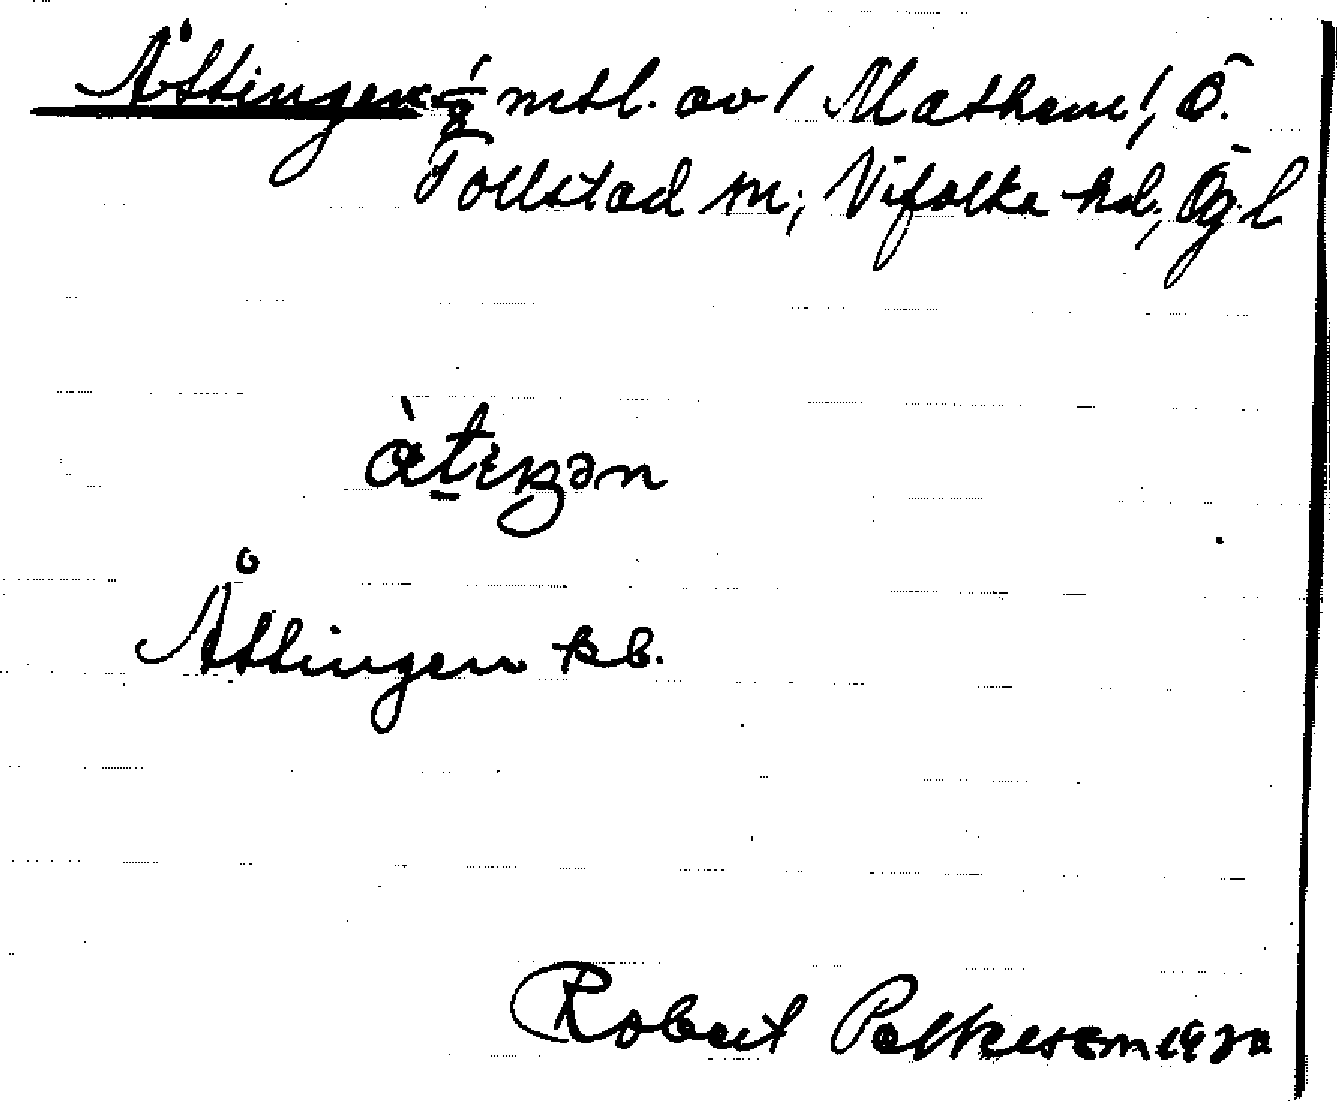 Åttingen 1/8 mtl. av 1 Mathem!, Ö.
Tollstad sn; Vifolka hd, Ög.l
Åttingen kb.
Robert Pettersson 1920